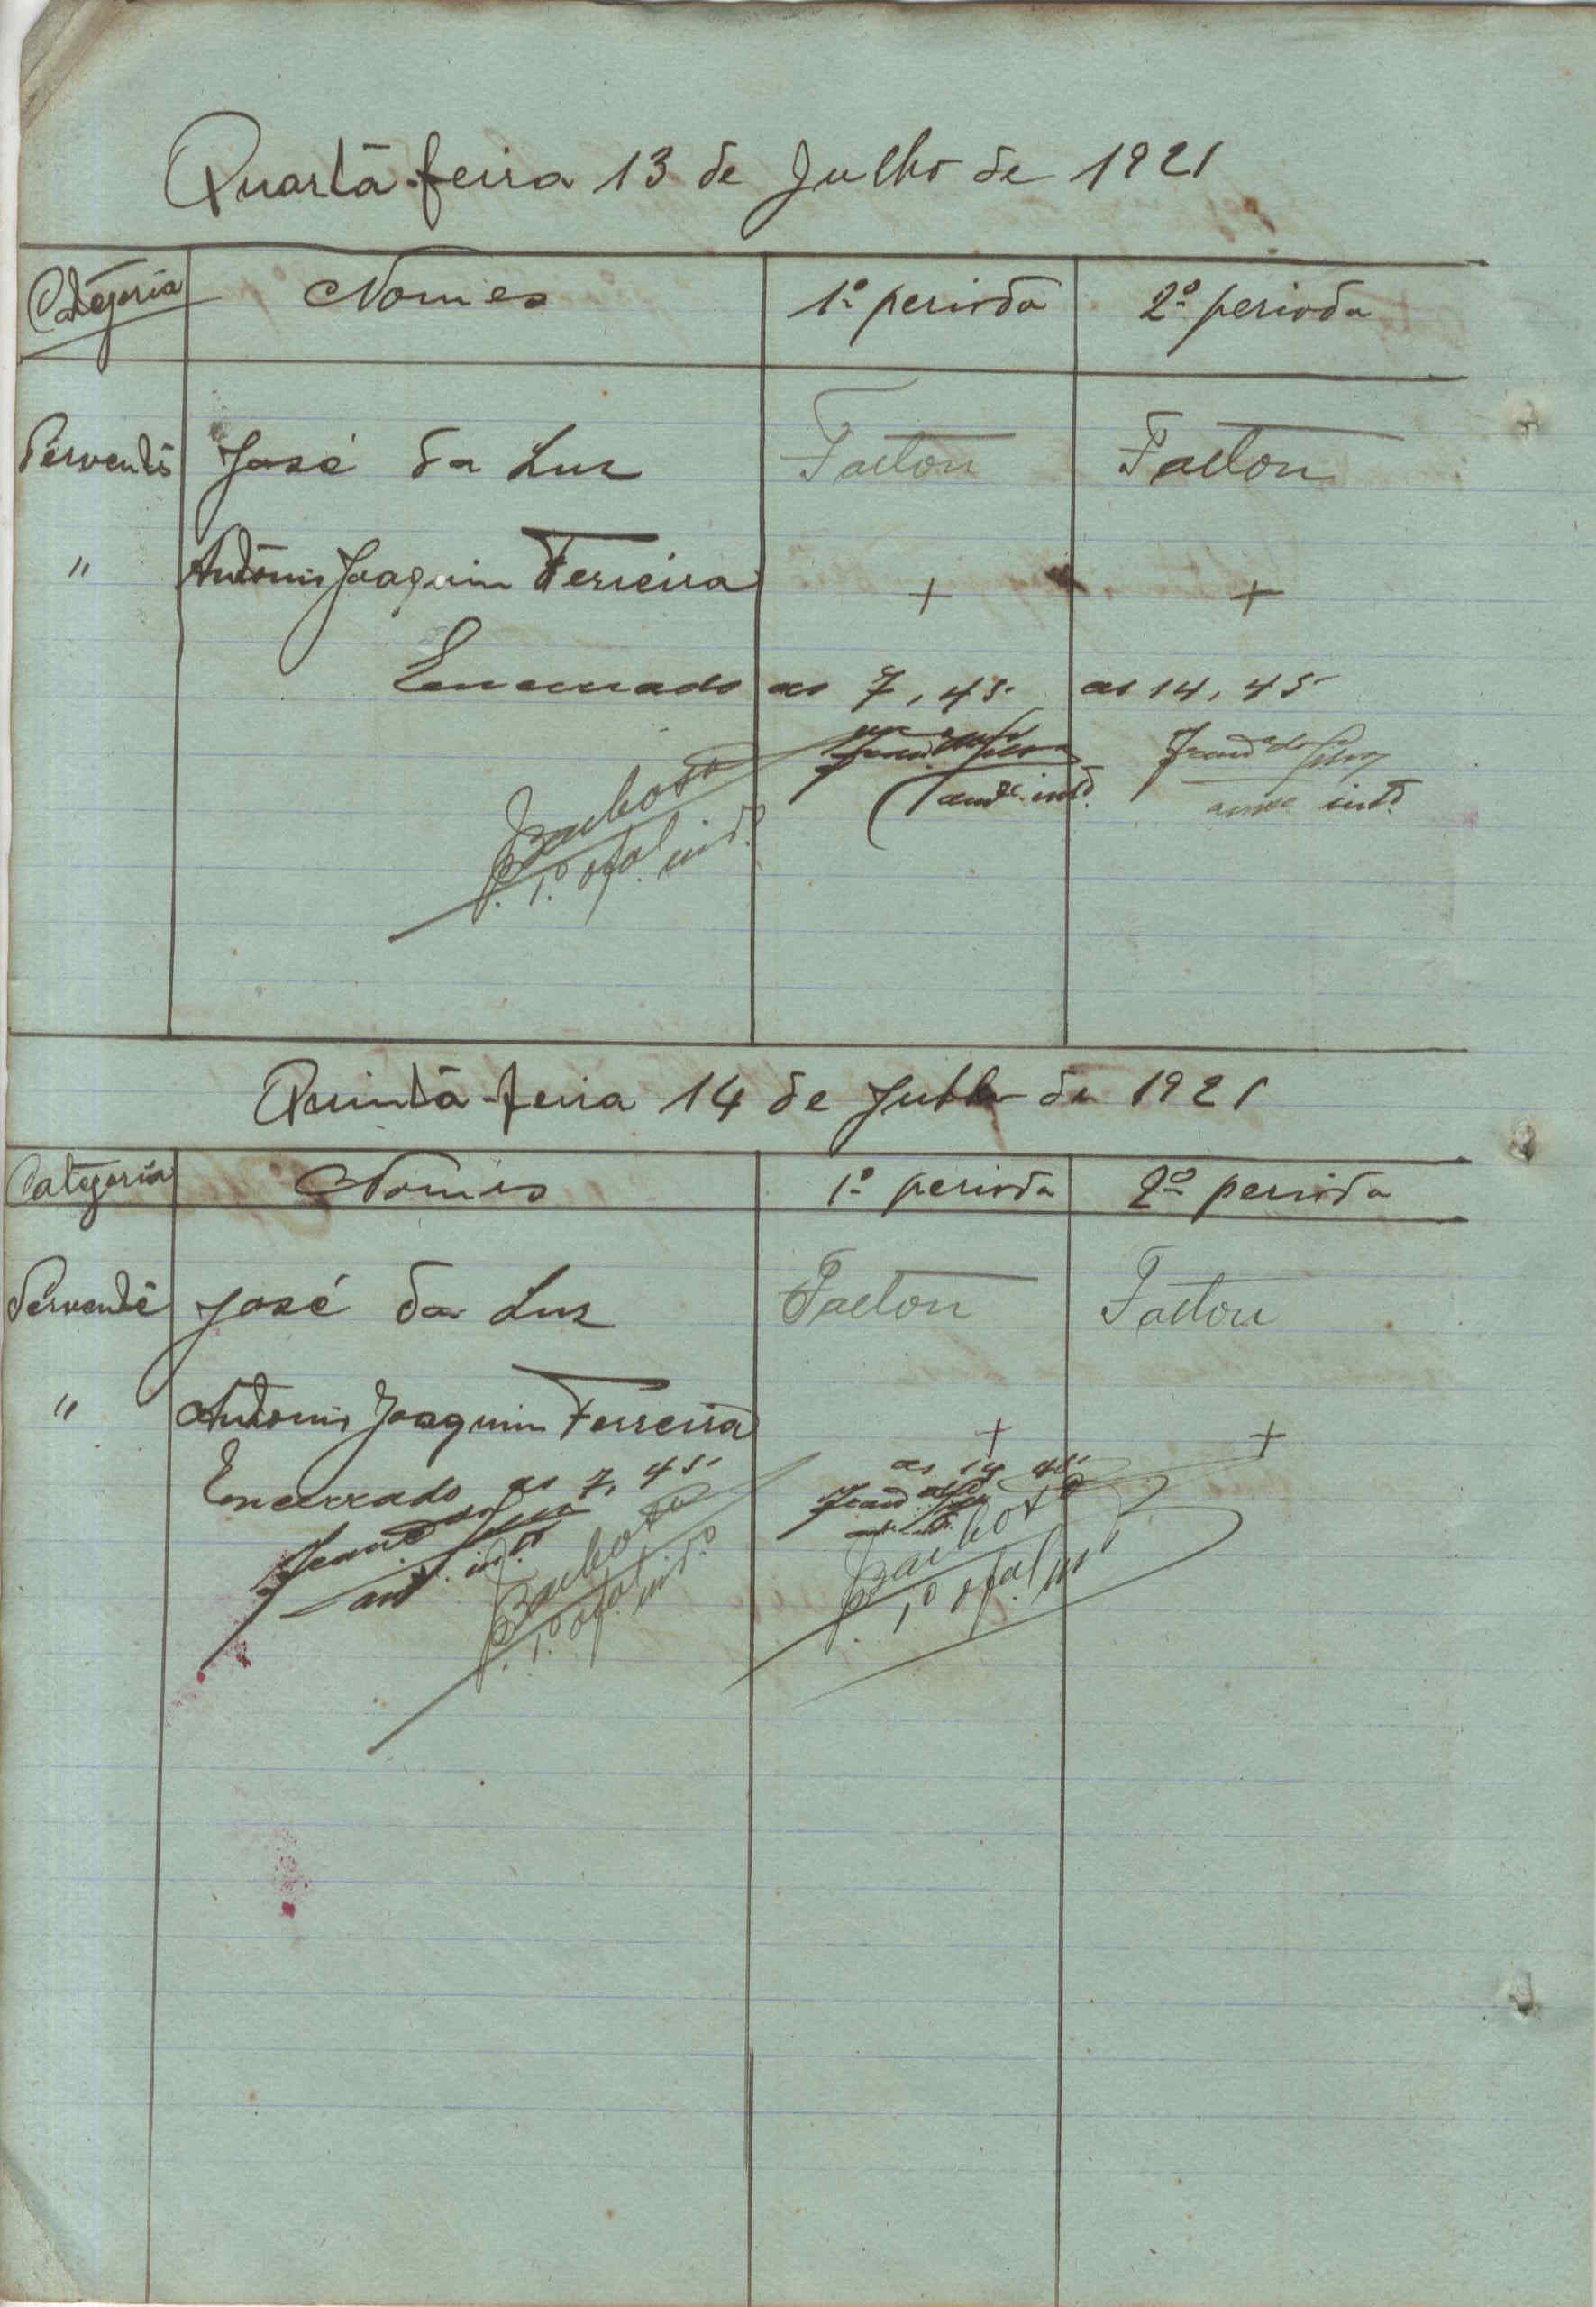 Quarta-feira 13 de Julho de 1921
Categoria Nomes 1º perioda 2º perioda
Servente José da Luz Faltou Faltou
" Antonio Joaquim Ferreira + +
Encerrado as 7,45 as 14,45
Barbosa
1º ofal. intº
Quinta-feira 14 de Julho de 1921
Categoria Nomes 1º perioda 2º perioda
Servente José da Luz Faltou Faltou
" Antonio Joaquim Ferreira + +
Encerrado as 7,45 as 14 45
Barbosa Barbosa
1º ofal. intº 1º ofal intº